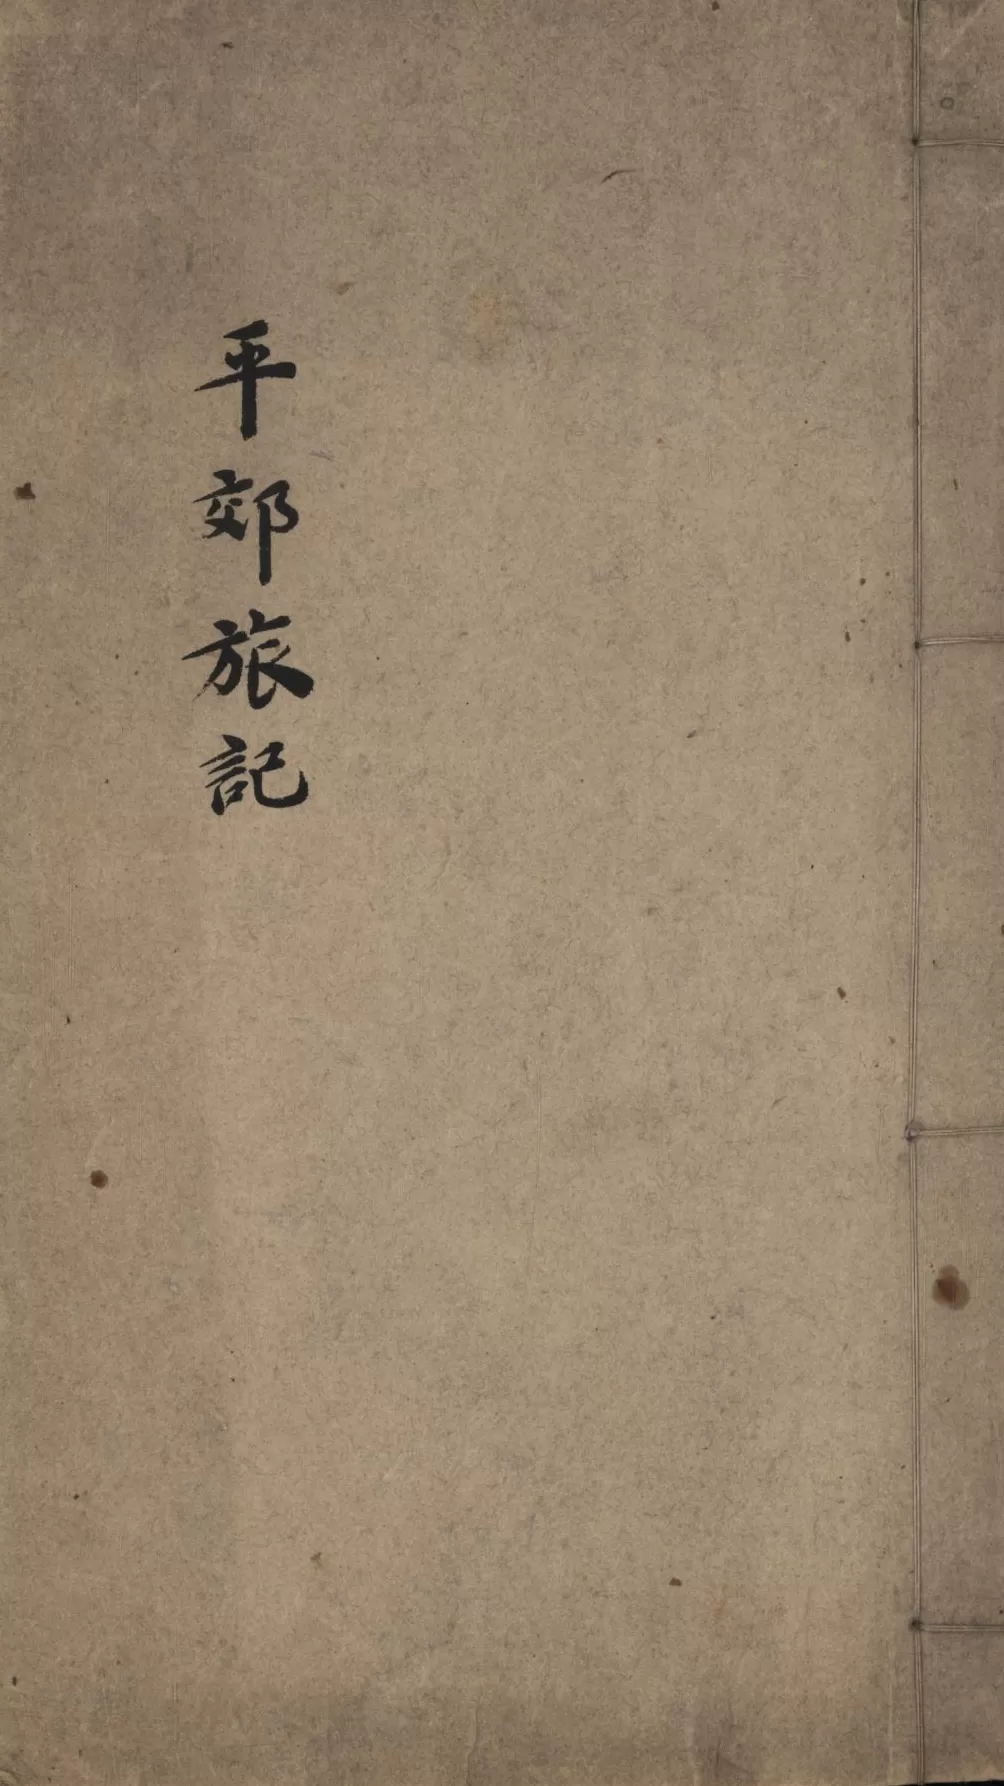 平郊旅記